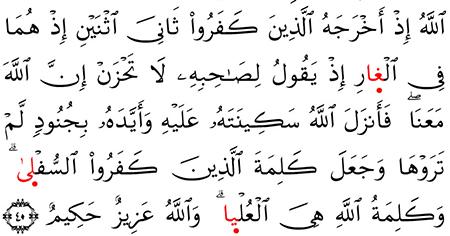 اللَّهُ إِذْ أَخْرَجَهُ الَّذِينَ كَفَرُوا۟ ثَانِىَ اثْنَيْنِ إِذْ هُمَا
فِى الْغَارِ إِذْ يَقُولُ لِصَاحِبِهِۦ لَا تَحْزَنْ إِنَّ اللَّهَ
مَعَنَا ۖ فَأَنزَلَ اللَّهُ سَكِينَتَهُۥ عَلَيْهِ وَأَيَّدَهُۥ بِجُنُودٍ لَّمْ
تَرَوْهَا وَجَعَلَ كَلِمَةَ الَّذِينَ كَفَرُوا۟ السُّفْلَىٰ ۗ
وَكَلِمَةُ اللَّهِ هِىَ الْعُلْيَا ۗ وَاللَّهُ عَزِيزٌ حَكِيمٌ ﴿٤٥﴾